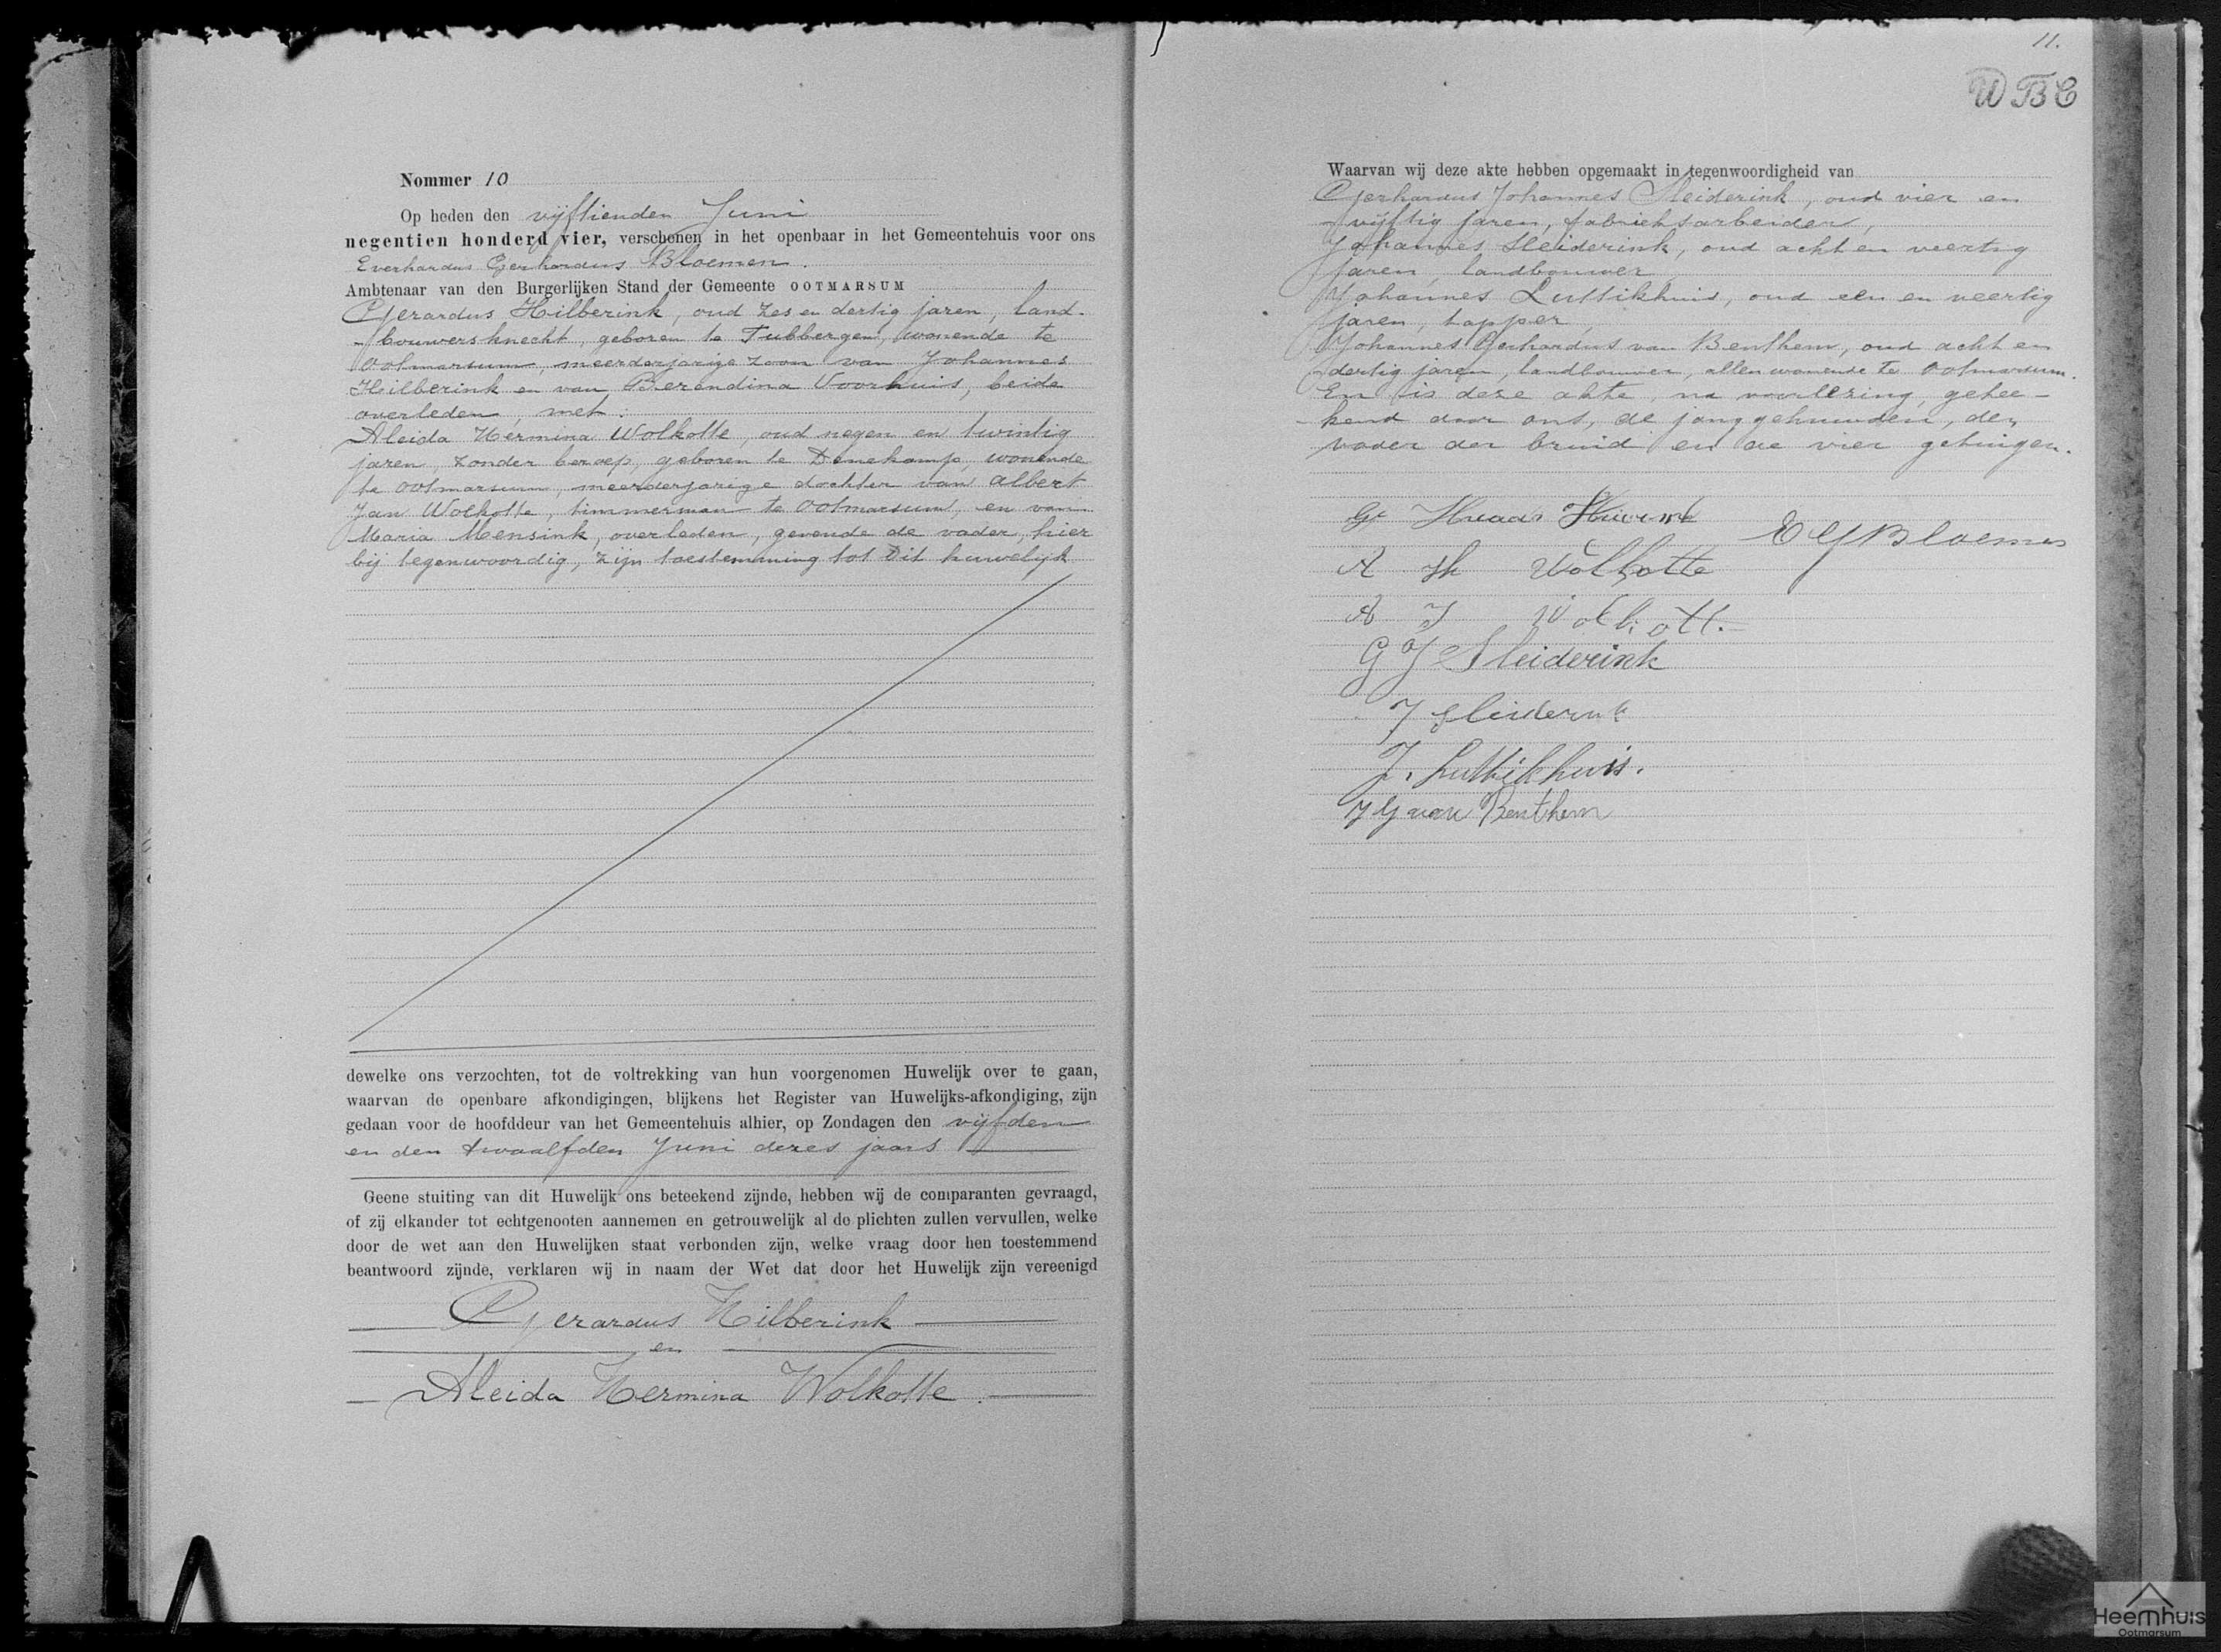 Nommer 10
Op heden den vijftienden Juni
negentien honderd vier, verschenen in het openbaar in het Gemeentehuis voor ons
Everhardus Gerhardus Bloemen.
Ambtenaar van den Burgerlijken Stand der Gemeente OOTMARSUM
Gerardus Hilberink, oud zes en dertig jaren, land-
bouwersknecht, geboren te Tubbergen, wonende te
Ootmarsum, meerderjarige zoon van Johannes
Hilberink en van Berendina Voorhuis, beide
overleden, met:
Aleida Hermina Wolkotte, oud negen en twintig
jaren, zonder beroep, geboren te Denekamp, wonende
te Ootmarsum, meerderjarige dochter van Albert
Jan Wolkotte, timmerman te Ootmarsum, en van
Maria Mensink, overleden, gevende de vader, hier
bij tegenwoordig, zijn toestemming tot dit huwelijk
dewelke ons verzochten, tot de voltrekking van hun voorgenomen Huwelijk over te gaan,
waarvan de openbare afkondigingen, blijkens het Register van Huwelijks-afkondiging, zijn
gedaan voor de hoofddeur van het Gemeentehuis alhier, op Zondagen den vijfden
en den twaalfden Juni dezes jaars
Geene stuiting van dit Huwelijk ons beteekend zijnde, hebben wij de comparanten gevraagd,
of zij elkander tot echtgenooten aannemen en getrouwelijk al de plichten zullen vervullen, welke
door de wet aan den Huwelijken staat verbonden zijn, welke vraag door hen toestemmend
beantwoord zijnde, verklaren wij in naam der Wet dat door het Huwelijk zijn vereenigd
Gerardus Hilberink
en
Aleida Hermina Wolkotte.
11.
WBC
Waarvan wij deze akte hebben opgemaakt in tegenwoordigheid van
Gerhardus Johannes Sleiderink, oud vier en
vijftig jaren, fabrieksarbeider,
Johannes Sleiderink, oud acht en veertig
jaren, landbouwer,
Johannes Luttikhuis, oud een en veertig
jaren, tapper,
Johannes Gerhardus van Benthem, oud acht en
dertig jaren, landbouwer, allen wonende te Ootmarsum.
En is deze akte, na voorlezing, getee-
kend door ons, de jonggehuwden, den
vader der bruid en de vier getuigen.
E G Bloemen
A H Wolkotte
A J
G J Sleiderink
J Sleiderink
J. Luttikhuis.
J G van Benthem
Heemhuis
Ootmarsum